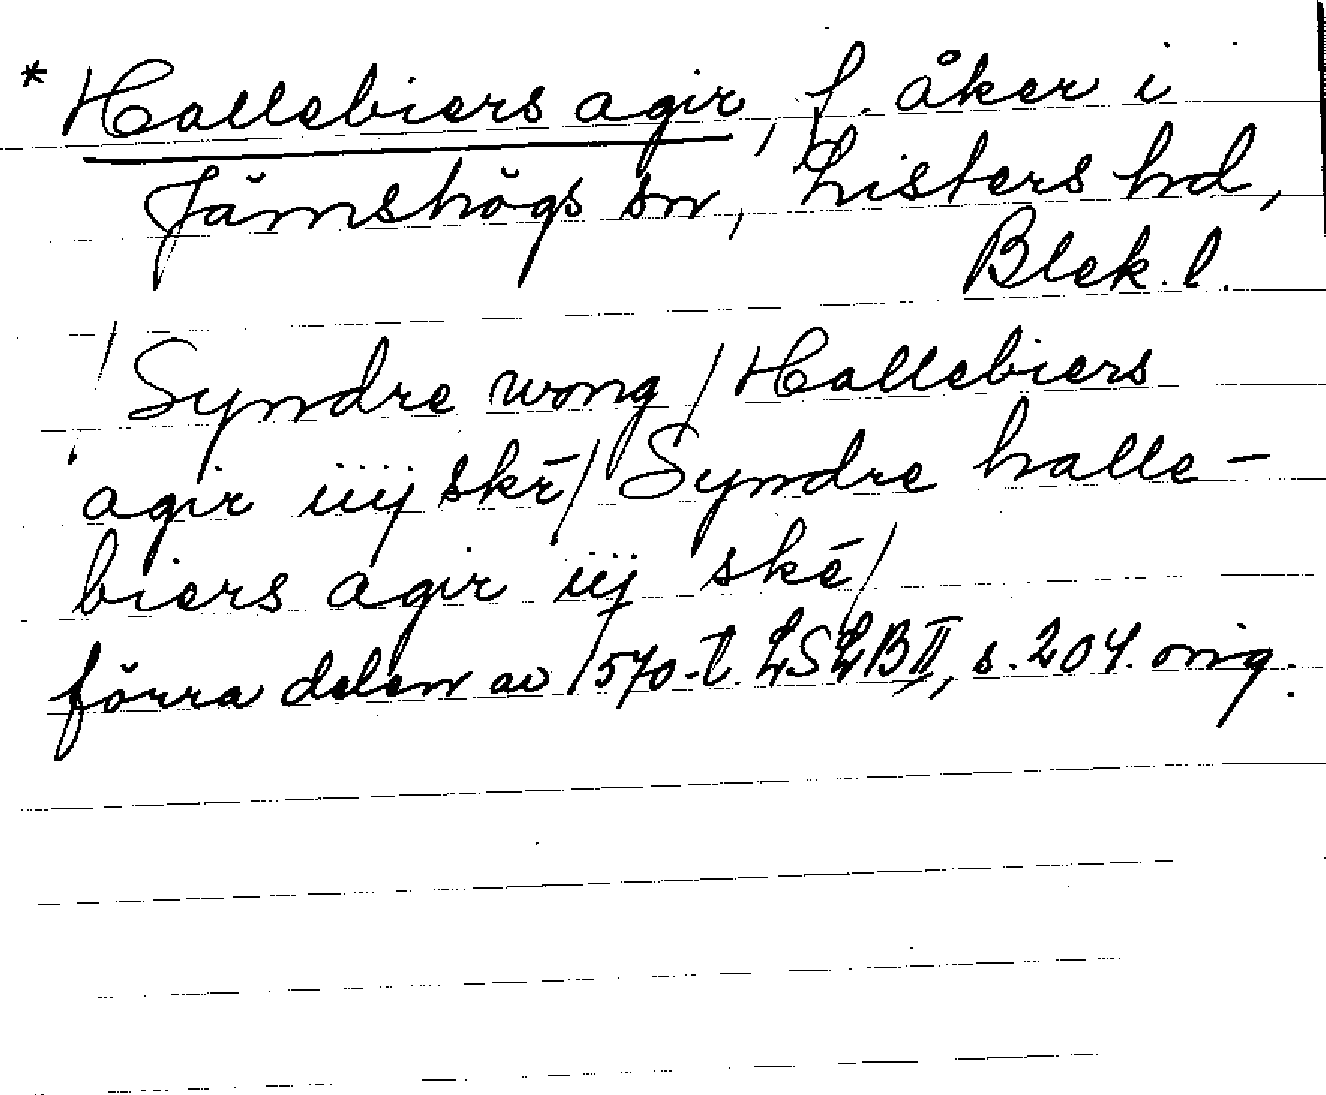 * Hallebiers agir, f. åker i
Jämshögs sn, Listers hd,
Blek. l.
/ Syndre wong / Hallebiers
agir iiij skē / Syndre halle-
biers agir iij skē /
förra delen av 1570-t. LSLB II, s. 204. orig.